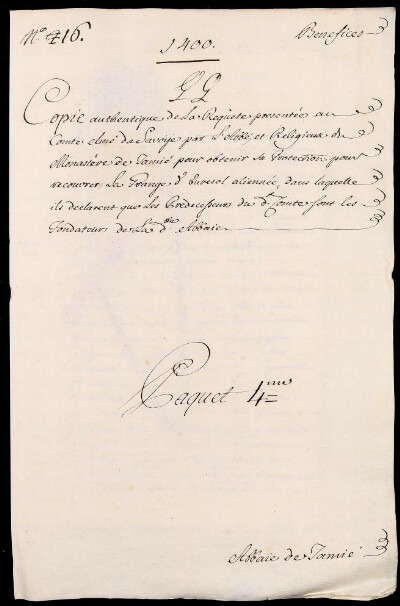 N.º 416. Benefices
1400.
Copie authentique de la Requête presentée au
Comte Amé de Savoye par l'Abbé et Religieux du
Monastère de Tamié pour obtenir sa Protection pour
recouvrer la Grange d' aliennée, dans laquelle
ils declarent que les Prédecesseurs du d.t Comte sont les
Fondateurs de la d.te Abbaïe
Paquet 4me
Abbaïe de Tamié